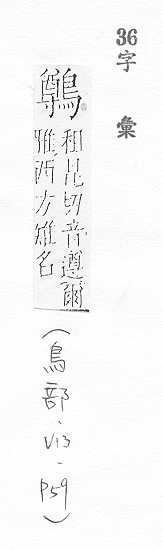 36字彙
鷷 租昆切音遵爾
雅西方雉名
(鳥部、V13-P59)